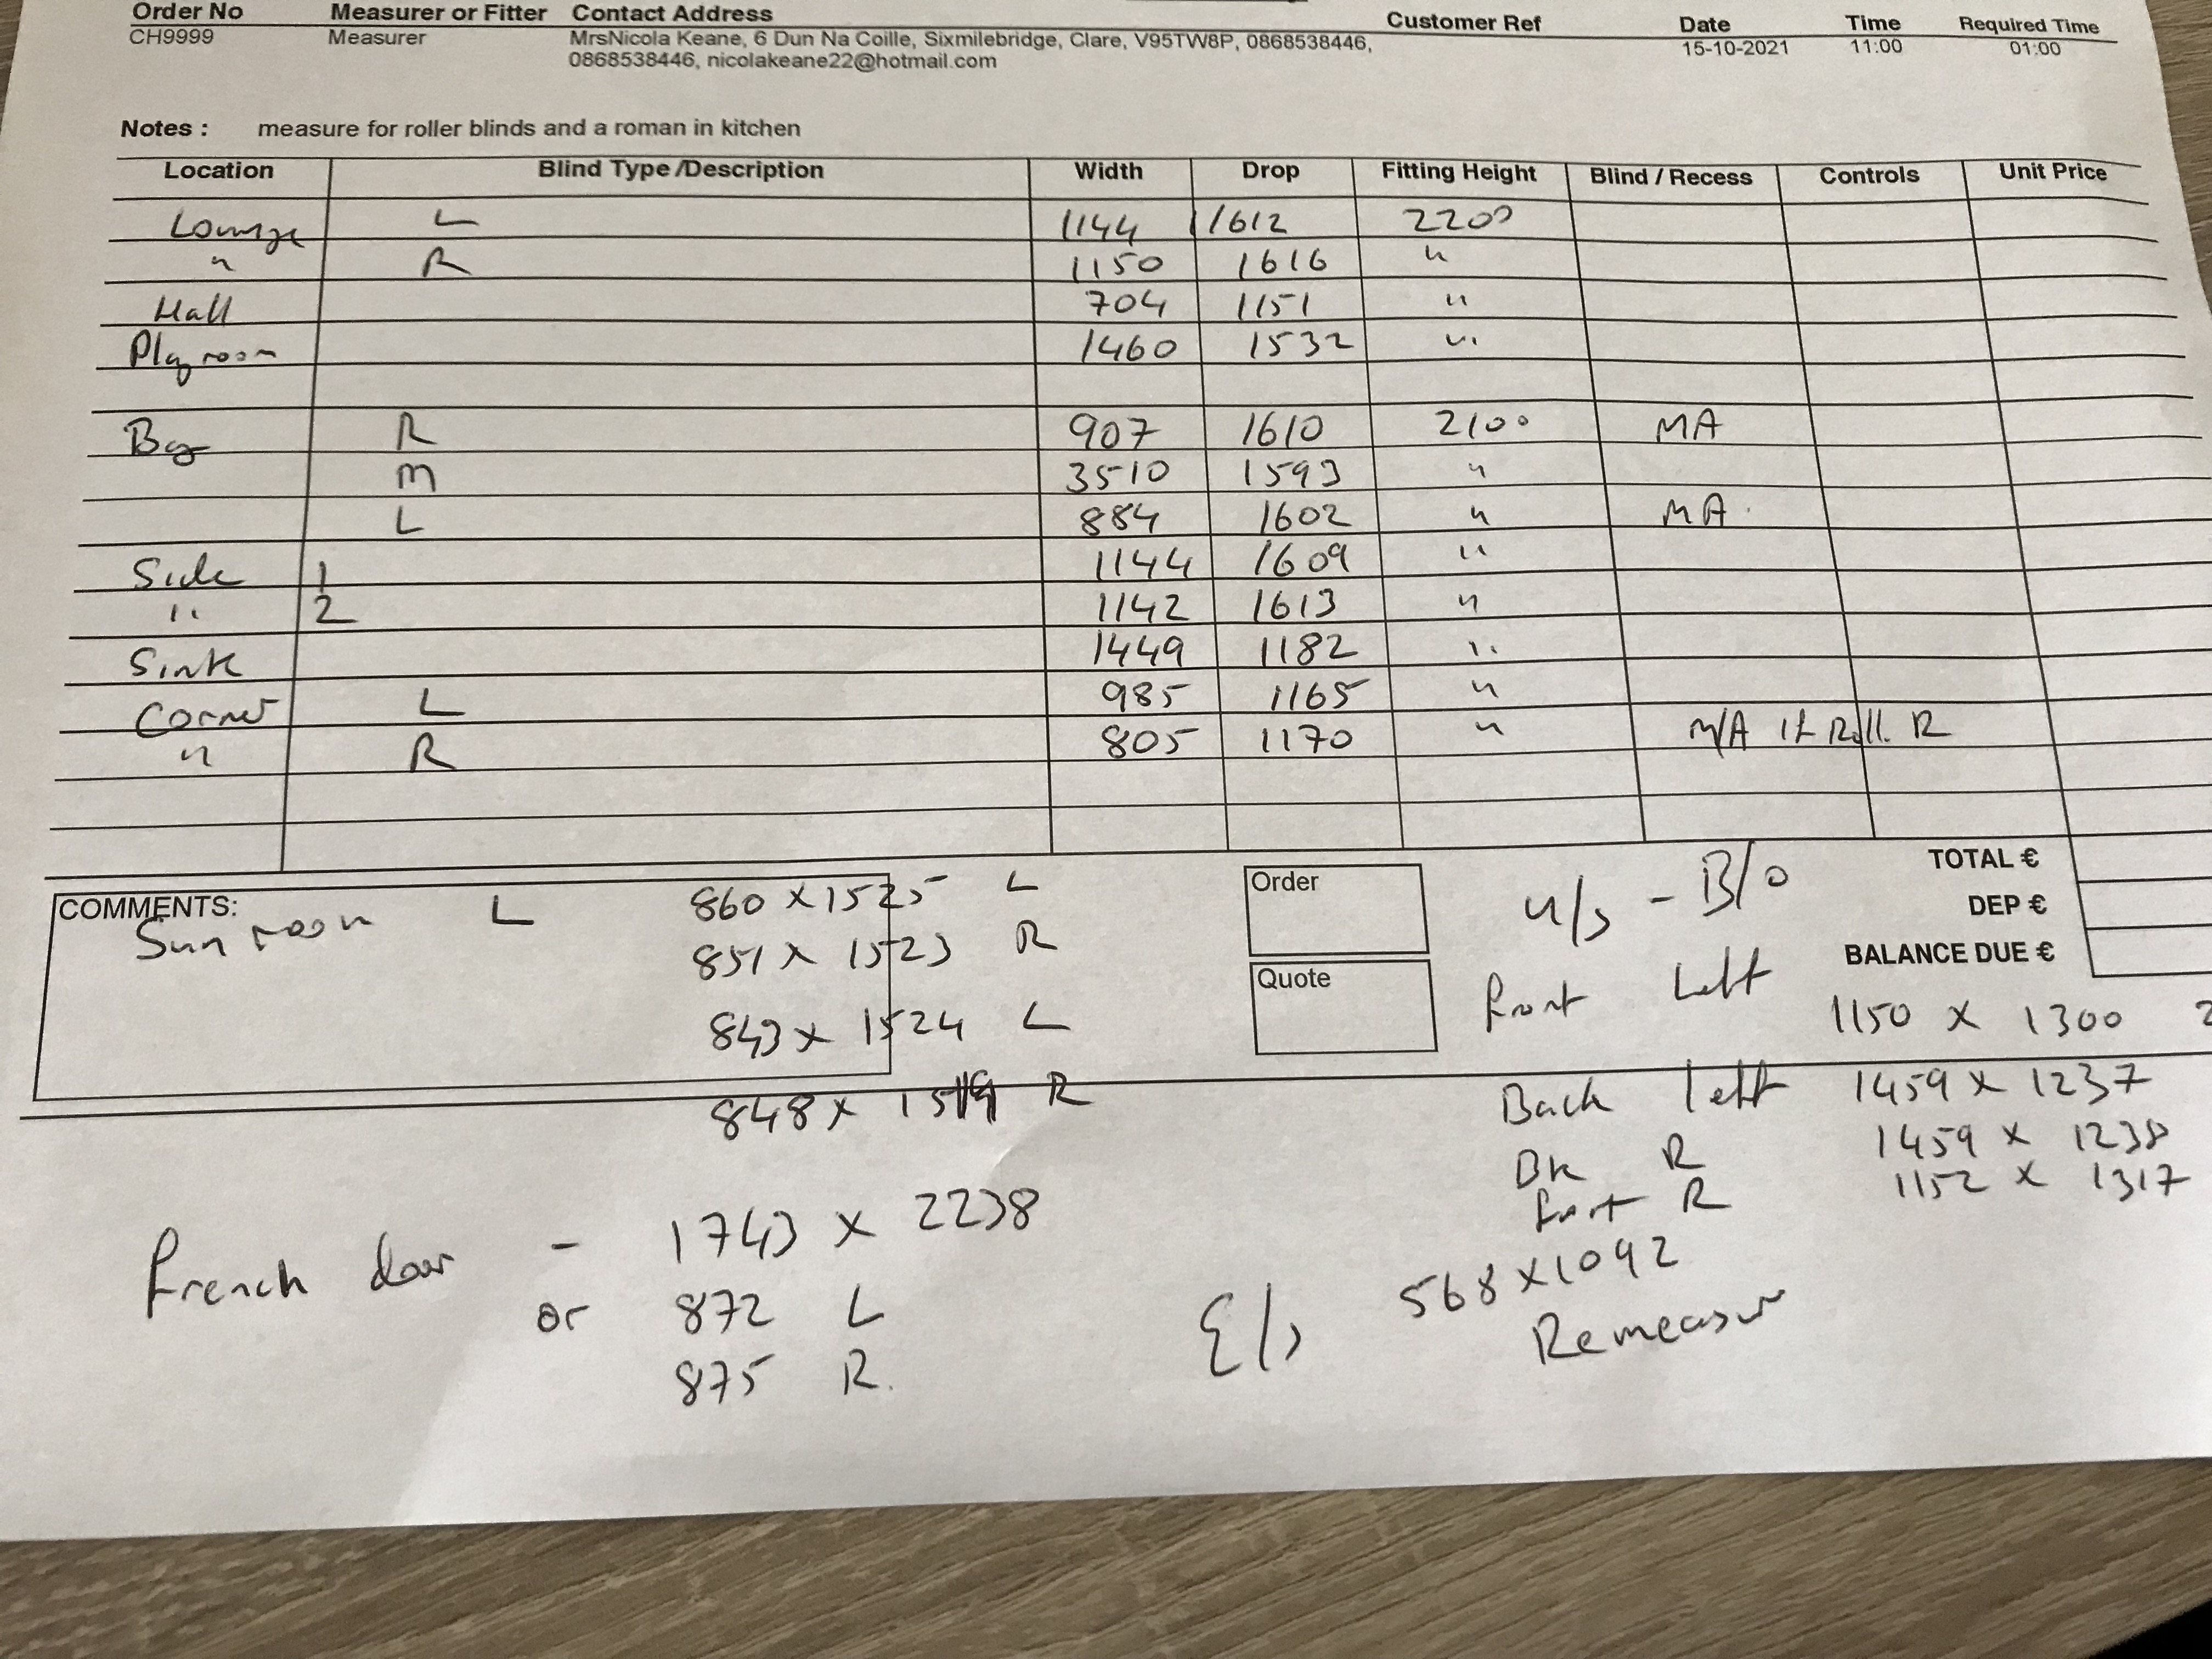 Order No Measurer or Fitter Contact Address Customer Ref Date Time Required Time
CH9999 Measurer MrsNicola Keane, 6 Dun Na Coille, Sixmilebridge, Clare, V95TW8P, 0868538446, 15-10-2021 11:00 01:00
0868538446, nicolakeane22@hotmail.com
Notes : measure for roller blinds and a roman in kitchen
Location Blind Type /Description Width Drop Fitting Height Blind / Recess Controls Unit Price
Lounge L 1144 1612 2200
" R 1150 1616 "
Hall 704 1151 "
Playroom 1460 1532 "
R 907 1610 2100 MA
M 3510 1593 "
L 884 1602 " MA
Side 1 1144 1609 "
" 2 1142 1613 "
Sink 1449 1182 "
Corner L 985 1165 "
" R 805 1170 " M/A If Roll. R
TOTAL €
DEP €
BALANCE DUE €
COMMENTS:
Sun room L 860 x 1525 L
851 x 1523 R
843 x 1524 L
848 x 1519 R
Order
Quote
u/s - B/o
front Left 1150 x 1300 2
Back left 1459 x 1237
Bk R 1459 x 1238
front R 1152 x 1317
French door - 1743 x 2238
or 872 L
875 R.
E/s 568 x 1092
Remeasure